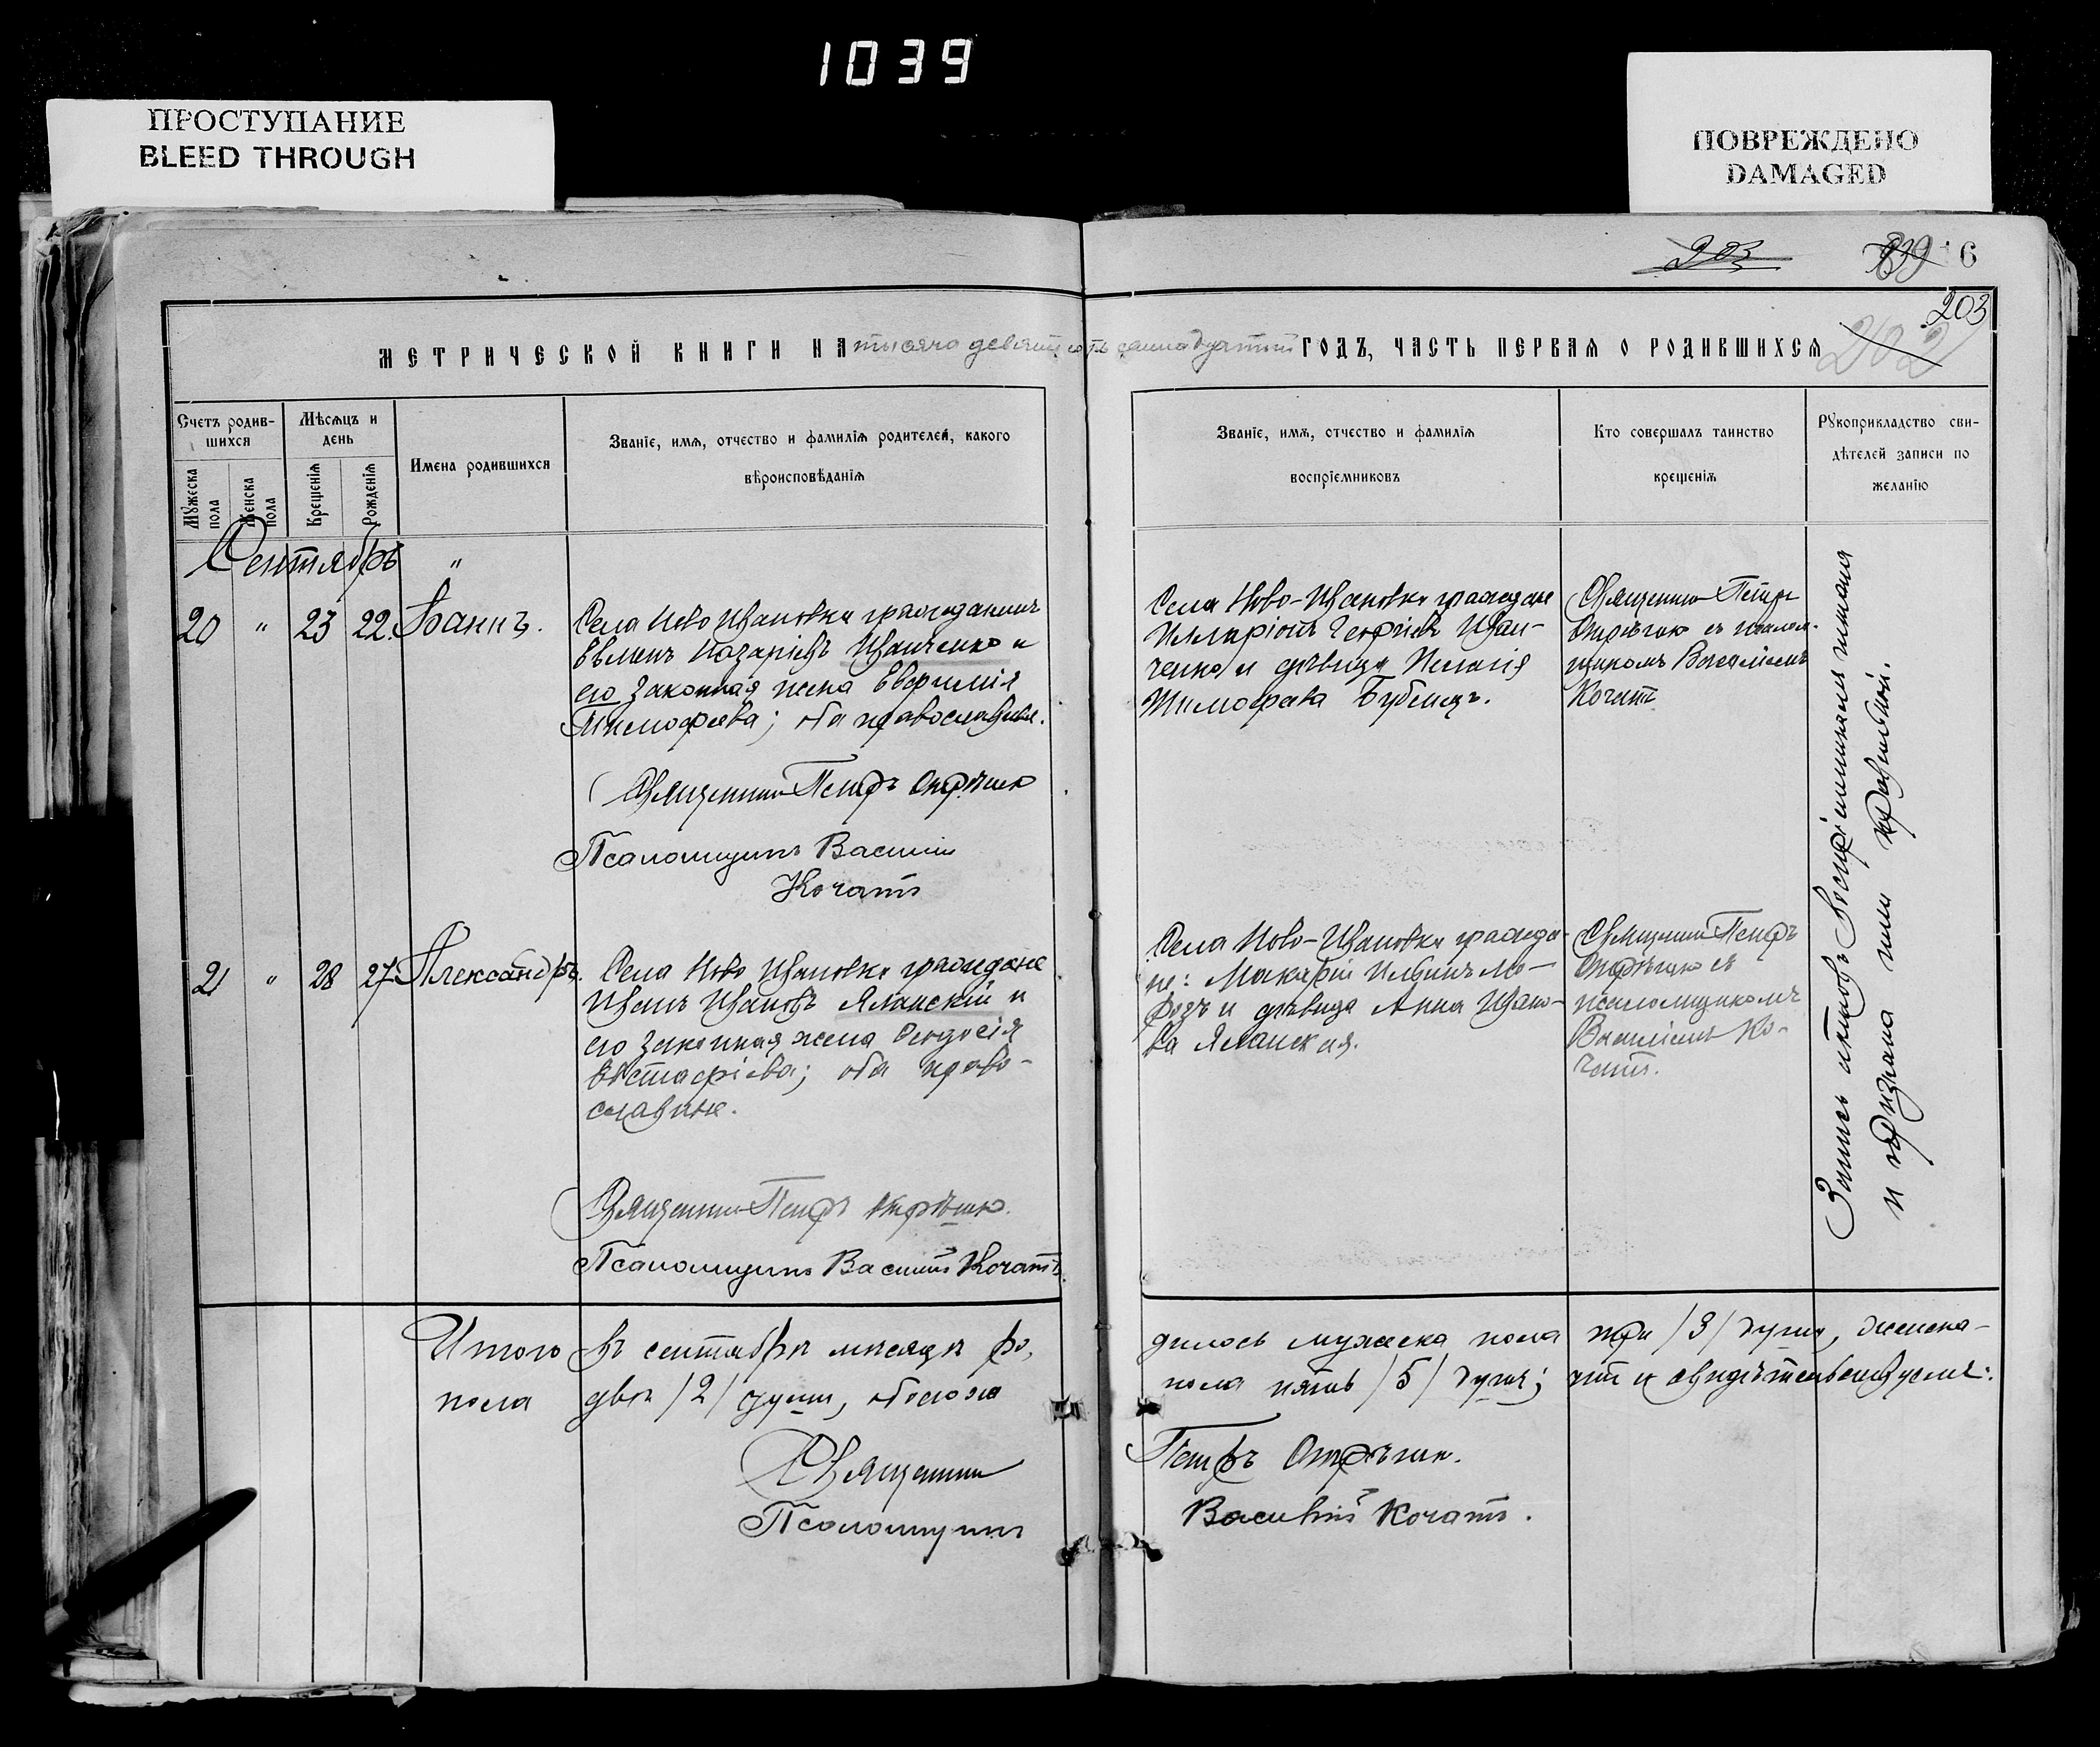 1039
ПРОСТУПАНИЕ
BLEED THROUGH
ПОВРЕЖДЕНО
DAMAGED
203
839 6
203
202
МЕТРИЧЕСКОЙ КНИГИ НА тысяча девятьсотъ семнадцатый ГОДЪ, ЧАСТЬ ПЕРВАЯ О РОДИВШИХСЯ
Счетъ родив-
шихся
Мужеска
пола
Женска
пола
Мѣсяцъ и
день
Крещенія
Рожденія
Имена родившихся
Званіе, имя, отчество и фамилія родителей, какого
вѣроисповѣданія
Званіе, имя, отчество и фамилія
воспріемниковъ
Кто совершалъ таинство
крещенія
Рукоприкладство сви-
дѣтелей записи по
желанію
Сентябрь "
20 " 23 22 Іоаннъ.
Села Ново Ивановки гражданинъ
Назаріевъ Иванченко и
его законная жена Евфимія
Тимофеева; оба православные.
Священникъ Петръ Стрѣшко
Псаломщикъ Василій
Кочатъ
Села Ново-Ивановки граждане
Илларіонъ Георгіевъ Иван-
ченко и дѣвица Пелагія
Тимофеева Бубенцъ.
Священникъ Петръ
съ псалом-
щикомъ Василіемъ
Кочатъ
21 " 28 27 Александръ.
Села Ново Ивановки граждане
Иванъ Ивановъ Яланскій и
его законная жена Феодосія
Евстафіева; оба право-
славные.
Священникъ Петръ
Псаломщикъ Василій Кочатъ.
Села Ново-Ивановки гражда-
не: Макарій Ильинъ Мо-
розъ и дѣвица Анна Ивано-
ва Яланская.
Священникъ Петръ
съ
псаломщикомъ
Василіемъ Ко-
чатъ.
Запись актовъ воспріемникамъ читана
и признана ими правильной.
Итого въ сентябрѣ мѣсяцѣ ро-
дилось мужеска пола три /3/ души, женска-
пола двѣ /2/ души, обоего
пола пять /5/ душъ; что и свидѣтельствуемъ:
Священникъ Петръ
Псаломщикъ Василій Кочатъ.